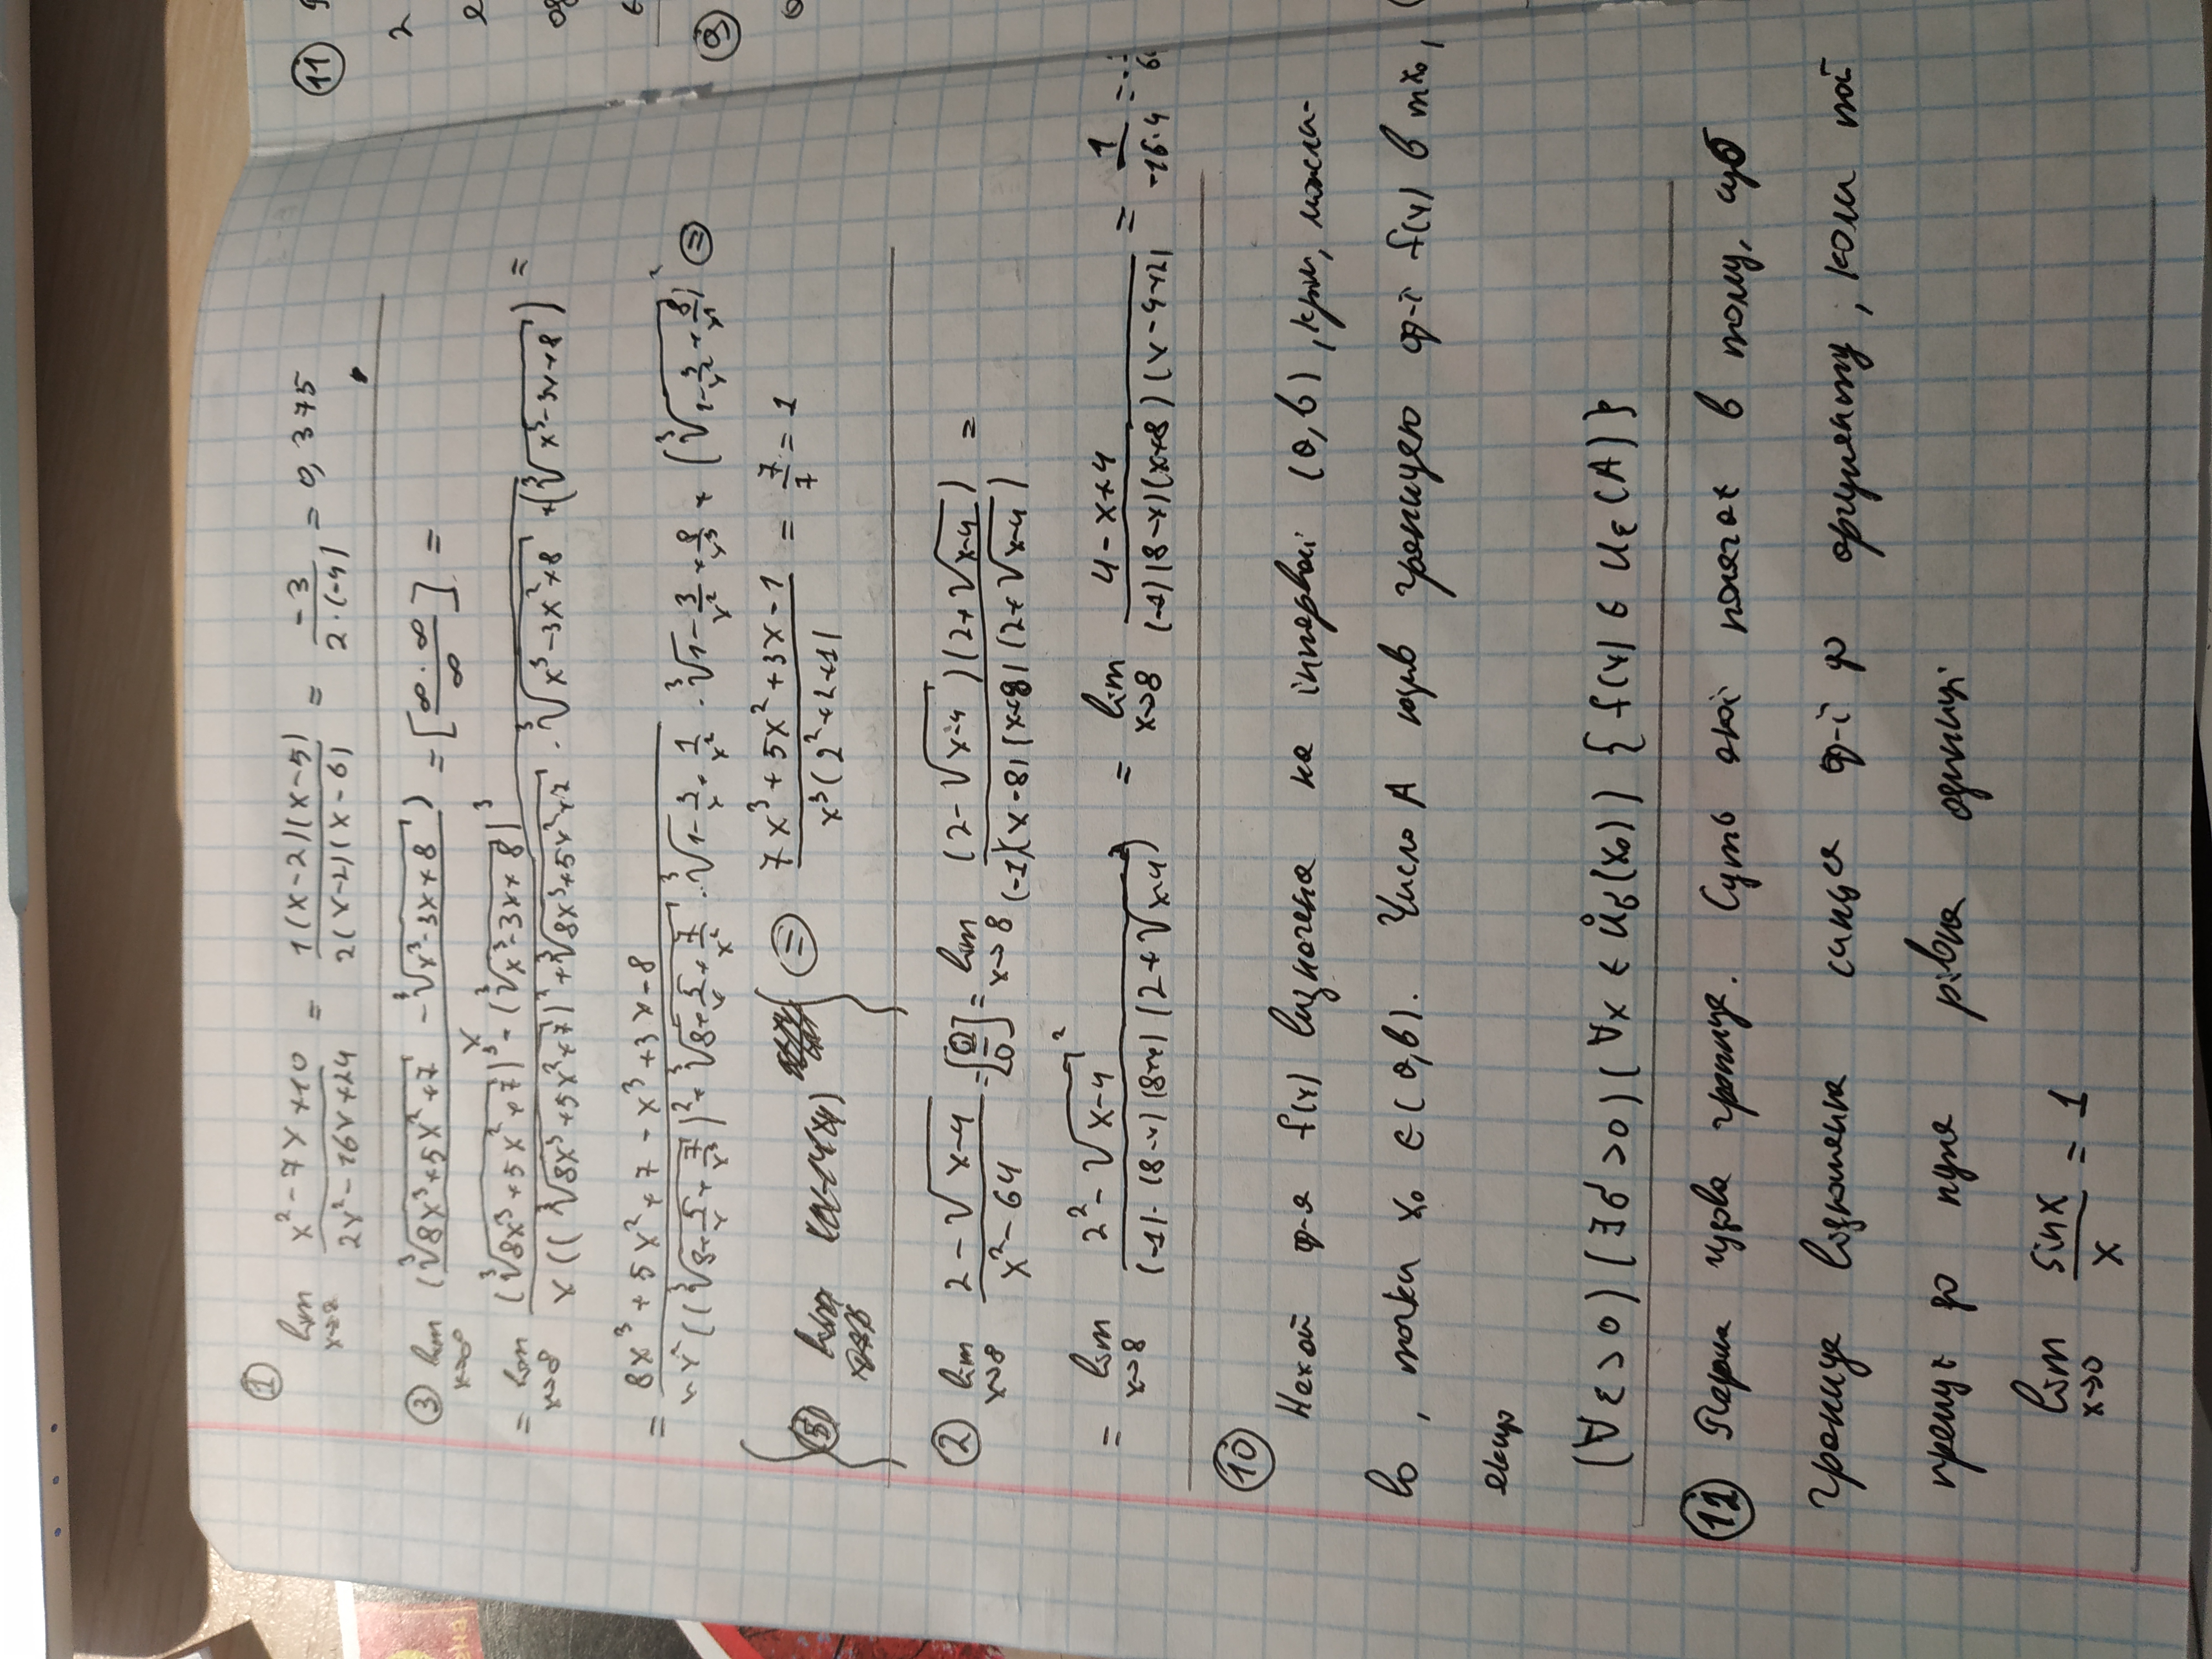 ①
lim x→2 (x² - 7x + 10)/(2x² - 16x + 24) = 1(x-2)(x-5)/2(x-2)(x-6) = -3/(2·(-4)) = 0,375
③ lim x→∞ (∛(8x³+5x²+7) - ∛(x³-3x+8))/x = [∞·∞/∞] =
= lim x→∞ ((∛(8x³+5x²+7))³ - (∛(x³-3x+8))³)/(x((∛(8x³+5x²+7))² + ∛(8x³+5x²+7) · ∛(x³-3x²+8) + (∛(x³-3x+8))) =
= (8x³+5x²+7-x³+3x-8)/(((∛(8+5/x+7/x³))² + ∛(8+5/x+7/x²) · ∛(1-3/x+1/x²) · ∛(1-3/x²+8/x³) + (∛(1-3/x²+8/x³))² ⊜
⑤ lim
⊜ (7x³+5x²+3x-1)/(x³(2²+2+1)) = 7/7 = 1
② lim x→8 (2-√(x-4))/(x²-64) = [0/0] = lim x→8 ((2-√(x-4))(2+√(x-4)))/((-1)(x-8)(x+8)(2+√(x-4))) =
= lim x→8 (2²-√(x-4)²)/((-1)·(8-x)(8+x)(2+√(x-4))) = lim x→8 (4-x+4)/((-1)(8-x)(x+8)(x-4+2)) = 1/(-16·4) = -
⑩
Нехай ф-я f(x) визначена на інтервалі (a,b), крім, можли-
во, точки x₀ ∈ (a,b). Число A наз границею ф-ї f(x) в т x₀,
якщо
(∀ε>0)(∃δ>0)(∀x ∈ Ůδ(x₀)) {f(x) ∈ Uε(A)}
⑫ Перша чудова границя. Суть якої полягає в тому, що
границя відношення синуса ф-ї до аргументу, коли той
прямує до нуля рівна одиниці
lim x→0 sinx/x = 1
⑪
2
⑨